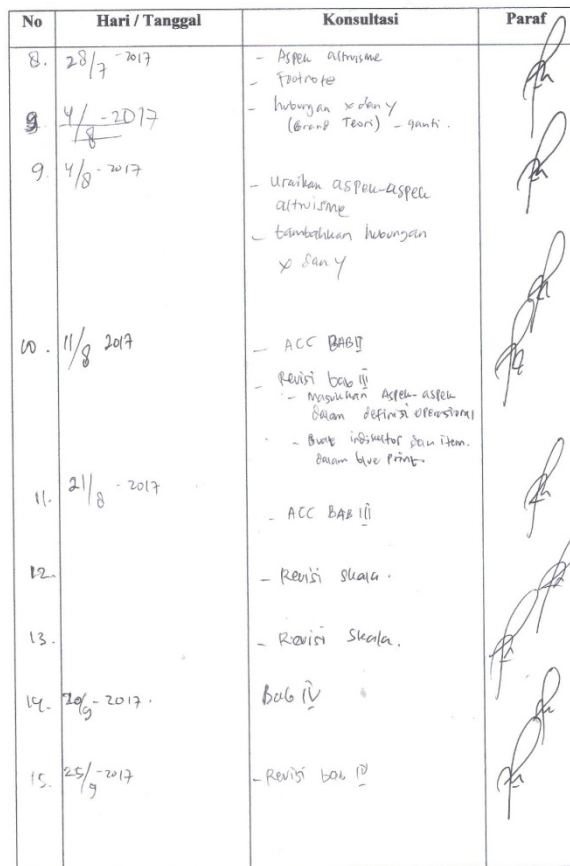 No Hari / Tanggal Konsultasi Paraf
8. 28/7 - 2017 - Aspek altruisme
- Footnote
9 4/8 - 2017 - hubungan x dan y
(Grand Teori) - ganti.
9. 4/8 - 2017
- Uraikan aspek-aspek
altruisme
- tambahkan hubungan
x dan y
10. 11/8 2017 - ACC BAB II
- Revisi bab III
- Masukkan Aspek-aspek
dalam definisi operasional
- Buat indikator dan item
dalam blue print.
11. 21/8 - 2017
- ACC BAB III
12. - Revisi skala.
13. - Revisi Skala.
14. 20/9 - 2017. Bab IV
15. 25/9 - 2017 - Revisi bab IV